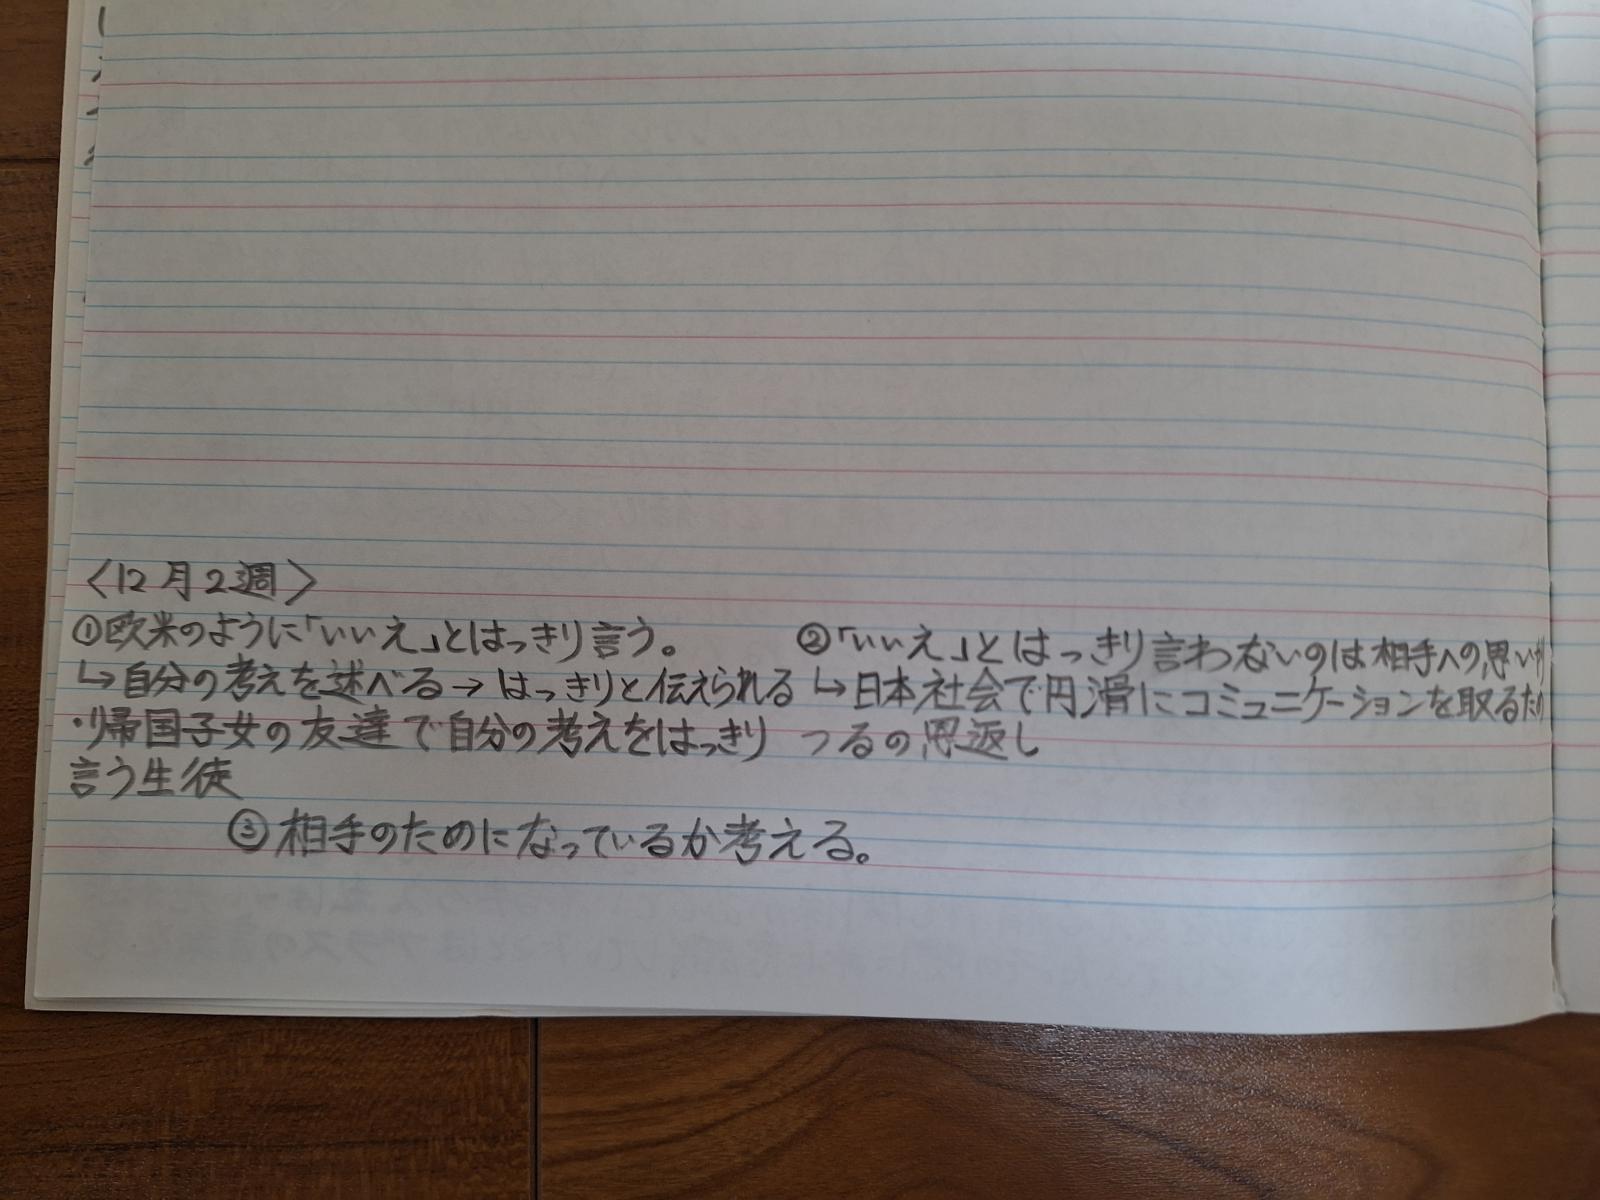 〈12月2週〉
①欧米のように「いいえ」とはっきり言う。
↳自分の考えを述べる→はっきりと伝えられる
・帰国子女の友達で自分の考えをはっきり
言う生徒
②「いいえ」とはっきり言わないのは相手への思いやり
↳日本社会で円滑にコミュニケーションを取るため
つるの恩返し
③相手のためになっているか考える。